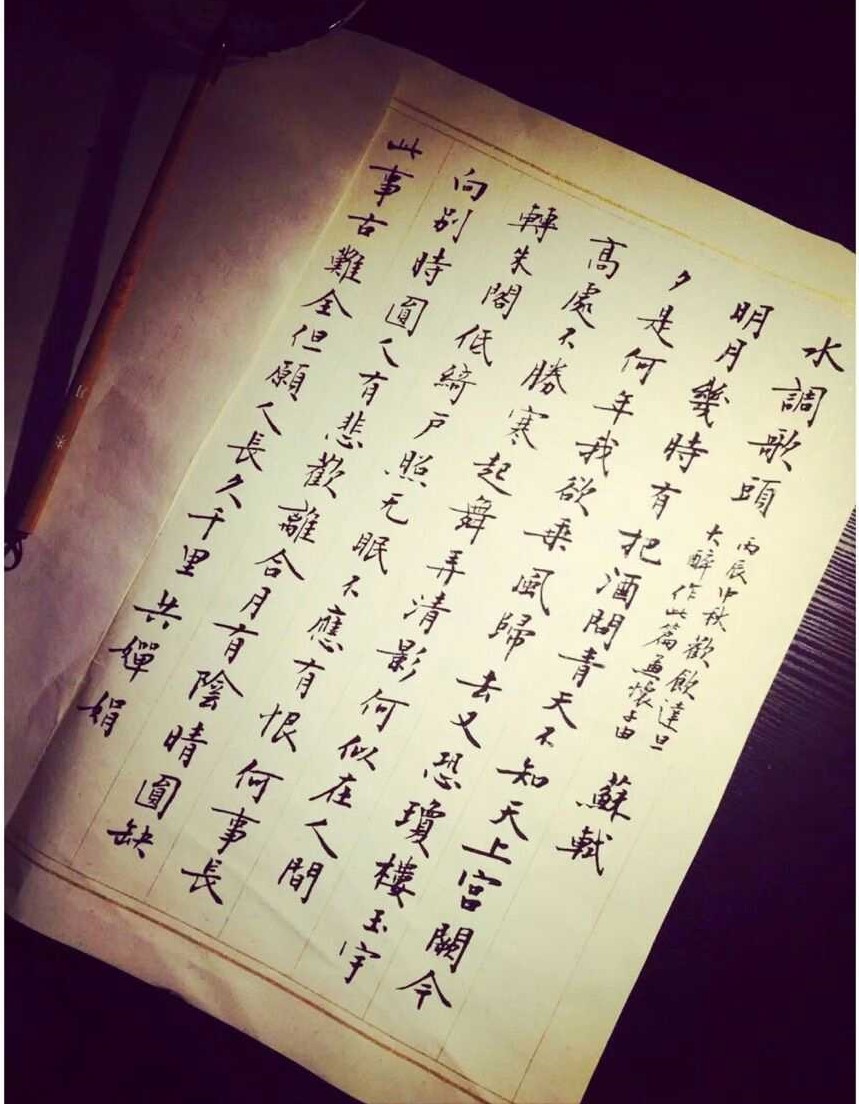 水調歌頭
丙辰中秋歡飲達旦
大醉作此篇兼懷子由
蘇軾
明月幾時有把酒問青天不知天上宮闕今
夕是何年我欲乘風歸去又恐瓊樓玉宇
高處不勝寒起舞弄清影何似在人間
轉朱閣低綺戶照无眠不應有恨何事長
向別時圓人有悲歡離合月有陰晴圓缺
此事古難全但願人長久千里共嬋娟